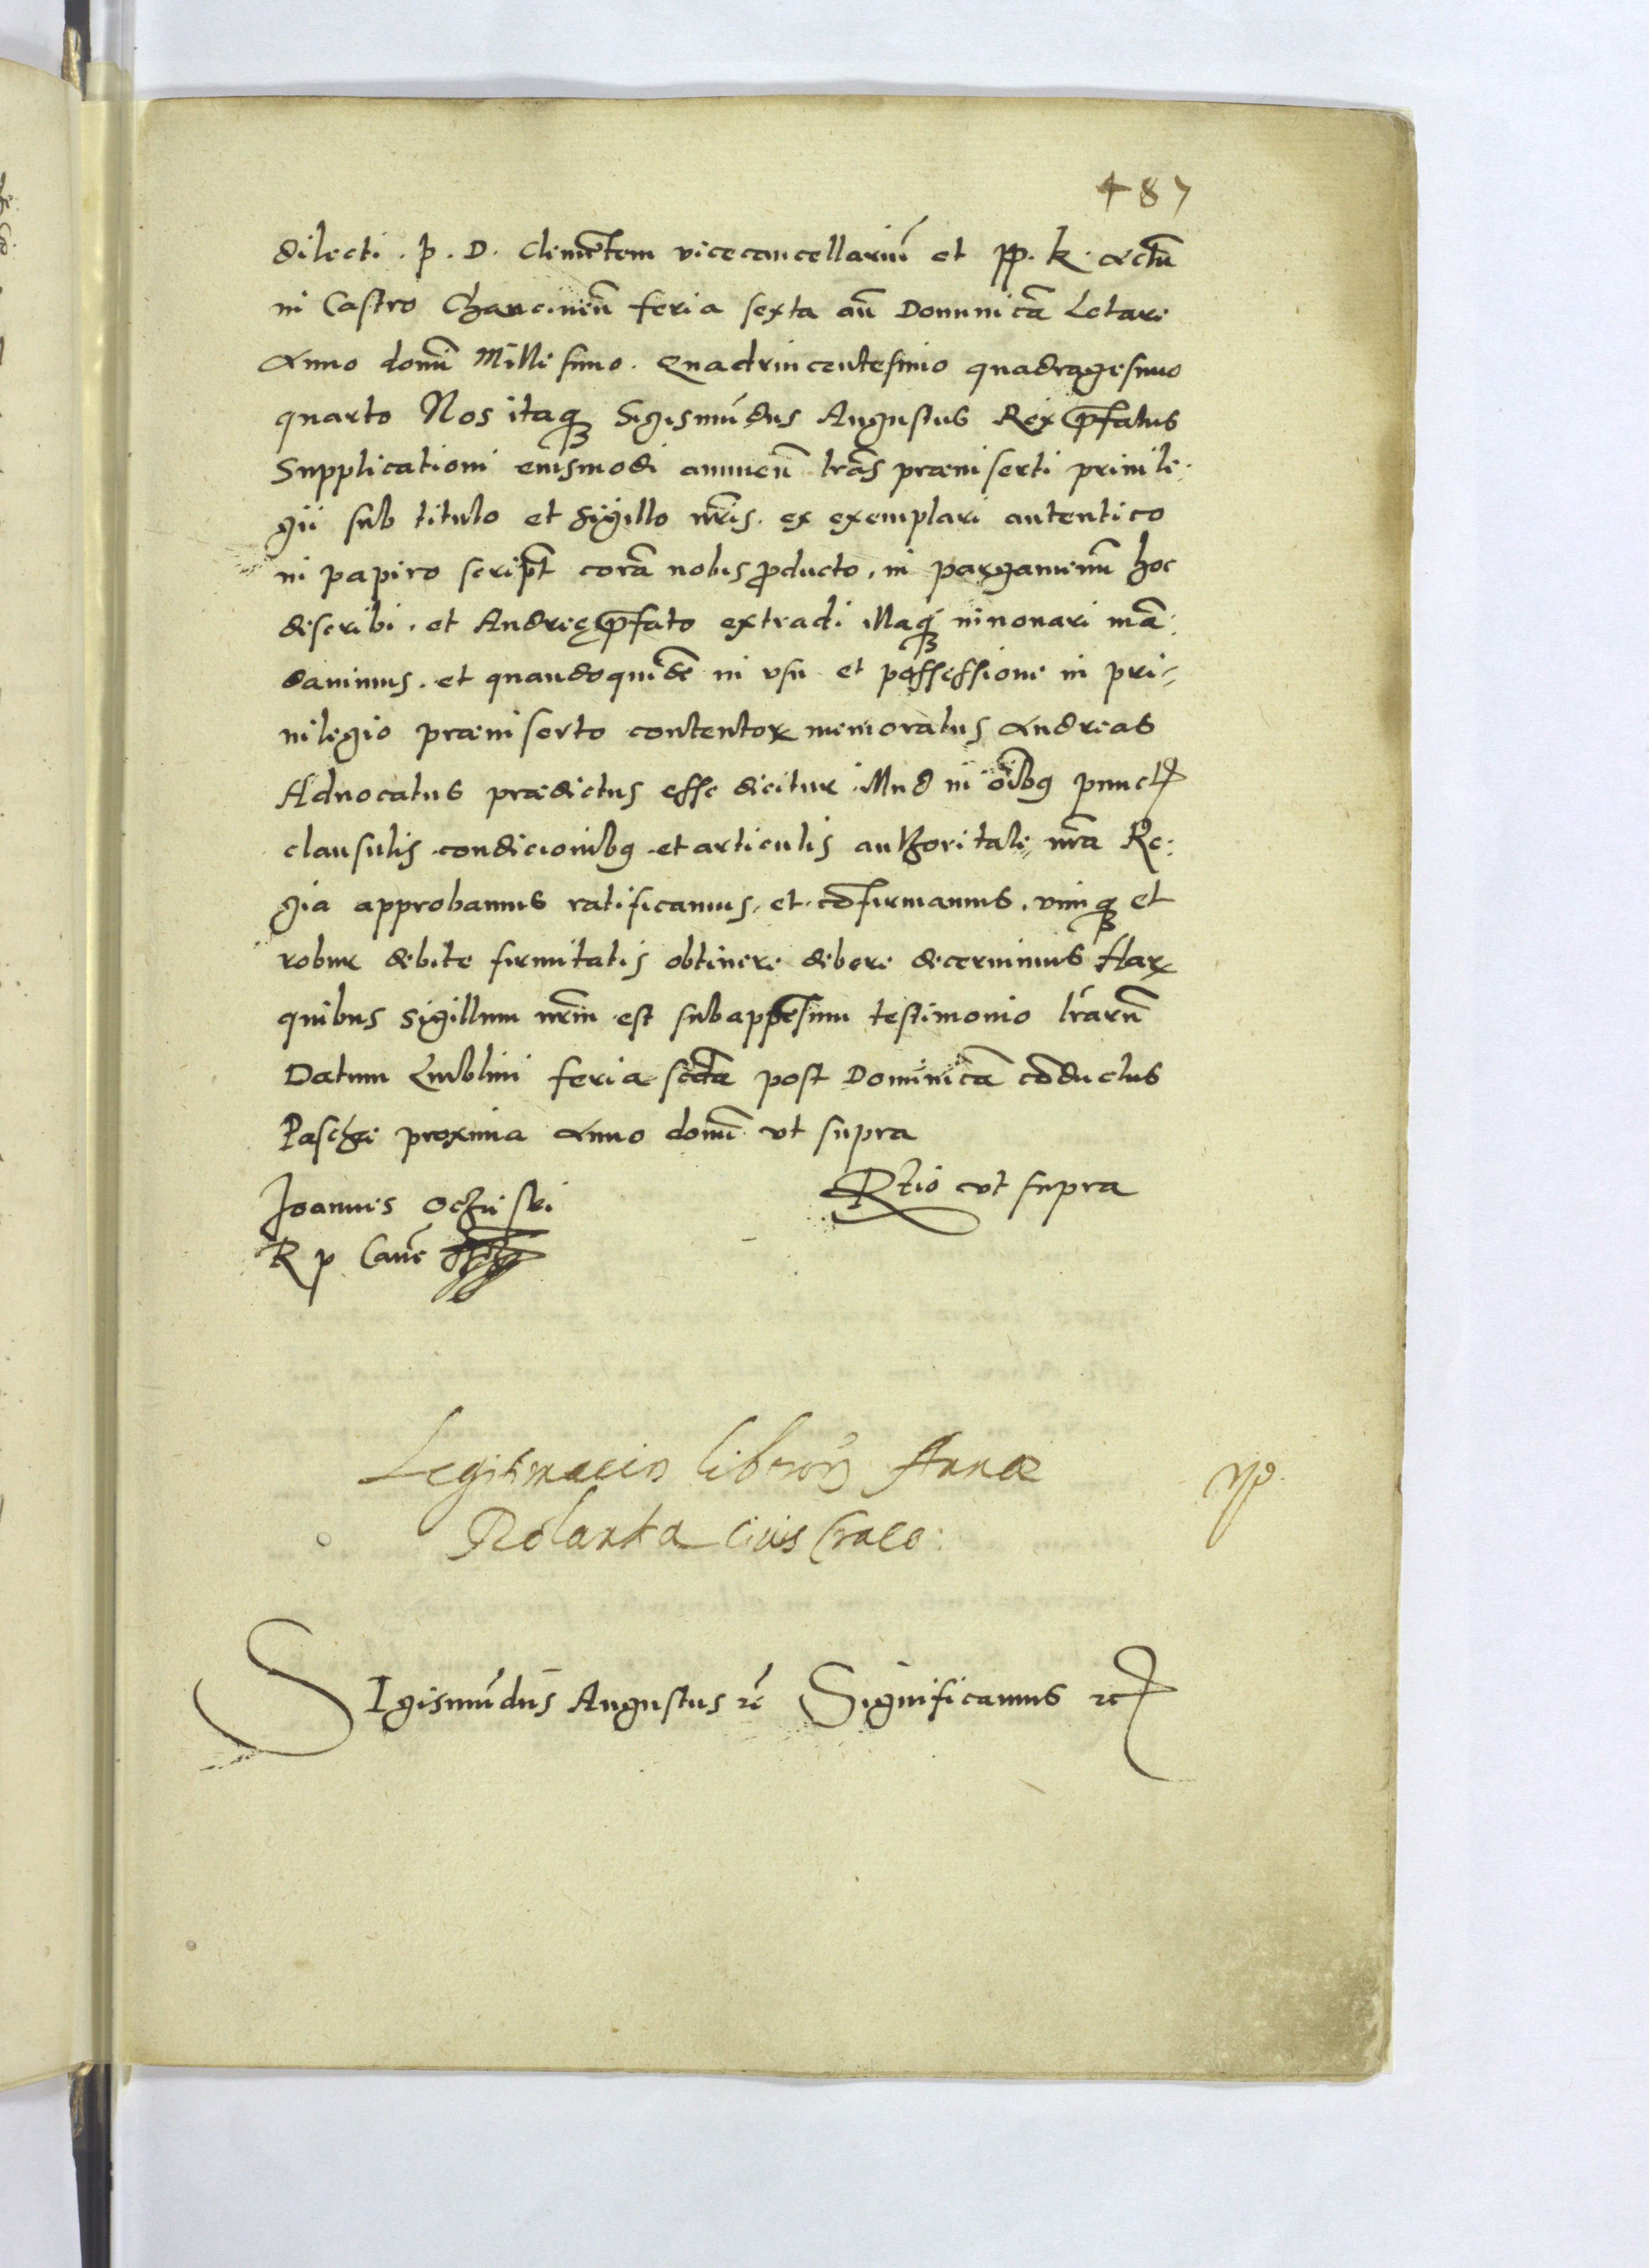 487
dilecti . p . D . Clementem vicecancellariũ et pp. k. Actũ
in Castro Chancinen̄ feria sexta an̄ Dominicã Letare
Anno domī Millesimo . Quadrincentesimo quadragesimo
quarto Nos itaqꝫ Sigismũdus Augustus Rex p̄fatus
Supplicationi eiusmodi annuen̄ lrãs præinserti priuile:
gii sub titulo et sigillo nr̄is . ex exemplari autentico
in papiro script̄ corã nobis ꝓducto . in pargaminum hoc
describi . et Andreę p̄fato extradi illaqꝫ innouari mã:
dauimus . et quandoquidẽ in vsu et possessione in pri-
uilegio præinserto contentoꝝ memoratus Andreas
Aduocatus prædictus esse dicitur illud in oĩbꝯ punctꝭ
clausulis condicionibꝯ et articulis authoritate nr̄a Re:
gia approbamus ratificamus, et cõfirmamus, vimqꝫ et
robur debite firmitatis obtinere debere decernimus Haꝝ
quibus sigillum nr̄m est subappẽsum testimonio lr̄arũ
Datum Lublini feria scda post Dominicã cõductus
Paschæ proxima Anno domī vt supra
Joannes Ocźieski Rtio vt supra
R p Canc̃
Legitimacio liberoꝝ Annæ
Rolanka ciuis Craco:
SIgismũdus Augustus ꝛc̃ Significamus ꝛcꝭ